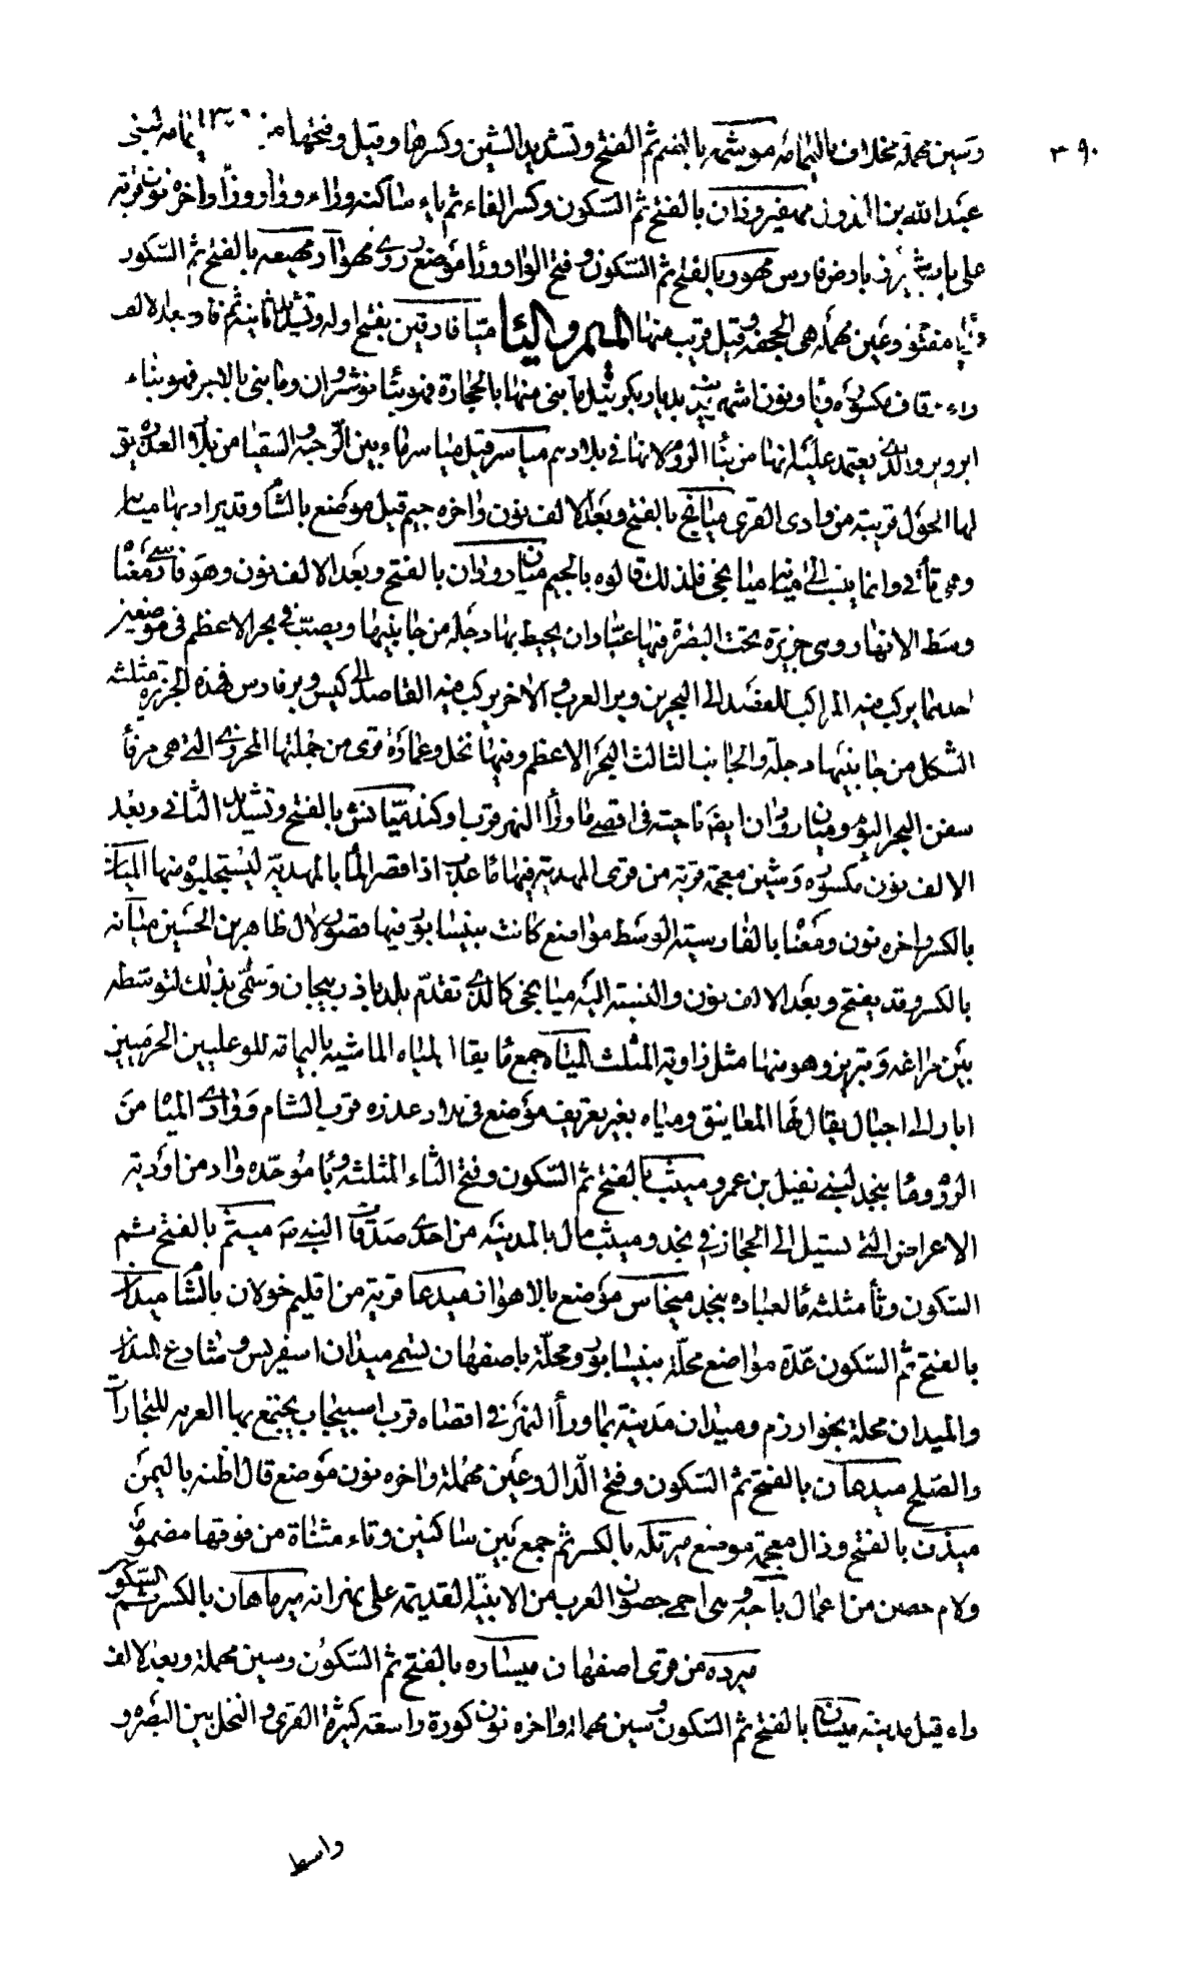 ٣٩٠
وسين مهملة مخلاف باليمامه مهشمه بالضم ثم الفتح وتشديد الشين وكسرها وقيل وفتحها من يمامه لبنى
عبد الله بن الدول مهفيروزان بالفتح ثم السكون وكسر الفاء ثم ياء ساكنه وراء وواو وزا واخره نون قرية
على باب شيراز بارض فارس مهور بالفتح ثم السكون وفتح الواو ورا موضع روى مهوا مهيعه بالفتح ثم السكون
ويا مفتوحه وعين مهمله هى الجحفه وقيل قريب منها الميم واليا ميافارقين بفتح اوله وتشديد ثانيه ثم فا وبعد الالف
راء وقاف مكسوره ويا ونون اشهر مدينة بديار بكر قيل ما بنى منها بالحجارة فهو بنا نوشروان وما بنى بالاجر فهو بناء
ابرويز والذى يعتمد عليه انها من بنا الروم لانها فى بلادهم مياسر قيل مياسر ماء بين الرحبه والسقيا من بلاد العذره يق
لها الحول قريبة من وادى القرى ميانج بالفتح وبعد الالف نون واخره جيم قيل موضع بالشام وقد يراد بها ميانه
وهى وانما ينسب الى ميانه ميانجى فلذلك قالوه بالجيم ميان روذان بالفتح وبعد الالف نون وهو فارسى معناه
وسط الانهار وهى جزيرة تحت البصرة فيها عبادان يحيط بها دجلة من جانبيها ويصب فى بحر الاعظم فى موضعين
احدهما يركب فيه المراكب للقصد الى البحرين وبر العرب والاخر يركب فيه القاصد الى كيس وبر فارس فهذه الجزيرة مثلثة
الشكل من جانبيها دجلة والجانب الثالث البحر الاعظم وفيها نخل وعمارة وقرى من جملتها المحرزى التى هى مرفأ
سفن البحر اليوم وميان روذان ايضا ناحيته فى اقصى ما ورا النهر قرب اوزكند ميانش بالفتح وتشديد الثانى وبعد
الالف نون مكسوره وشين معجمة قرية من قرى المهدية فيها ماء عذب اذا قصر الما بالمهدية يستجلبوه منها الميان
بالكسر واخره نون ومعناه بالفارسيه الوسط مواضع كانت بنيسابور فيها قصور لال طاهر بن الحسين ميانه
بالكسر وقد يفتح وبعد الالف نون والنسبة اليه ميانجى كالذى تقدم بلد باذربيجان وسمى بذلك لتوسطه
بين مراغه وتبريز وهو منها مثل زاوية المثلث المياه جمع ما يقال لمياه الماشيه باليمامة للوعليين الحرميين
ابار الى اجبال يقال لها المعانيق ومياه بغير تعريف موضع فى بلاد عذره قرب الشام ووادى المياه من
الرؤوما بنجد لبنى نفيل بن عمرو ميثب بالفتح ثم السكون وفتح الثاء المثلثه وبا موحده واد من اودية
الاعراض التى تسيل الى الحجاز فى نجد وميثب مال بالمدينه من احدى صدقات النبى ص ميثم بالفتح ثم
السكون وثا مثلثه ما لعباده بنجد ميخاس موضع بالاهواز ميدعا قرية من اقليم خولان بالشام ميدان
بالفتح ثم السكون عدة مواضع محلة بنيسابور ومحلة باصفهان تسمى ميدان اسفريس وشارع الميدان
والميدان محلة بخوارزم وميدان مدينة بما ورأ النهر فى اقصاه قرب اسبيجاب يجتمع بها الغزيه للتجارات
والصلح ميدعان بالفتح ثم السكون وفتح الدال وعين مهملة واخره نون موضع قال اظنه باليمن
ميذن بالفتح وذال معجمة موضع ميرتله بالكسر ثم جمع بين ساكنين وتاء مثناة من فوقها مضمومة
ولام حصن من اعمال باجه وهى احمى حصون الغرب من الابنيه القديمه على نهر انه ميرماهان بالكسر ثم السكون
ميرده من قرى اصفهان ميساره بالفتح ثم السكون وسين مهملة وبعد الالف
راء قيل مدينة ميسان بالفتح ثم السكون وسين مهملة واخره نون كورة واسعه كثيرة القرى والنخل بين البصره و
واسط